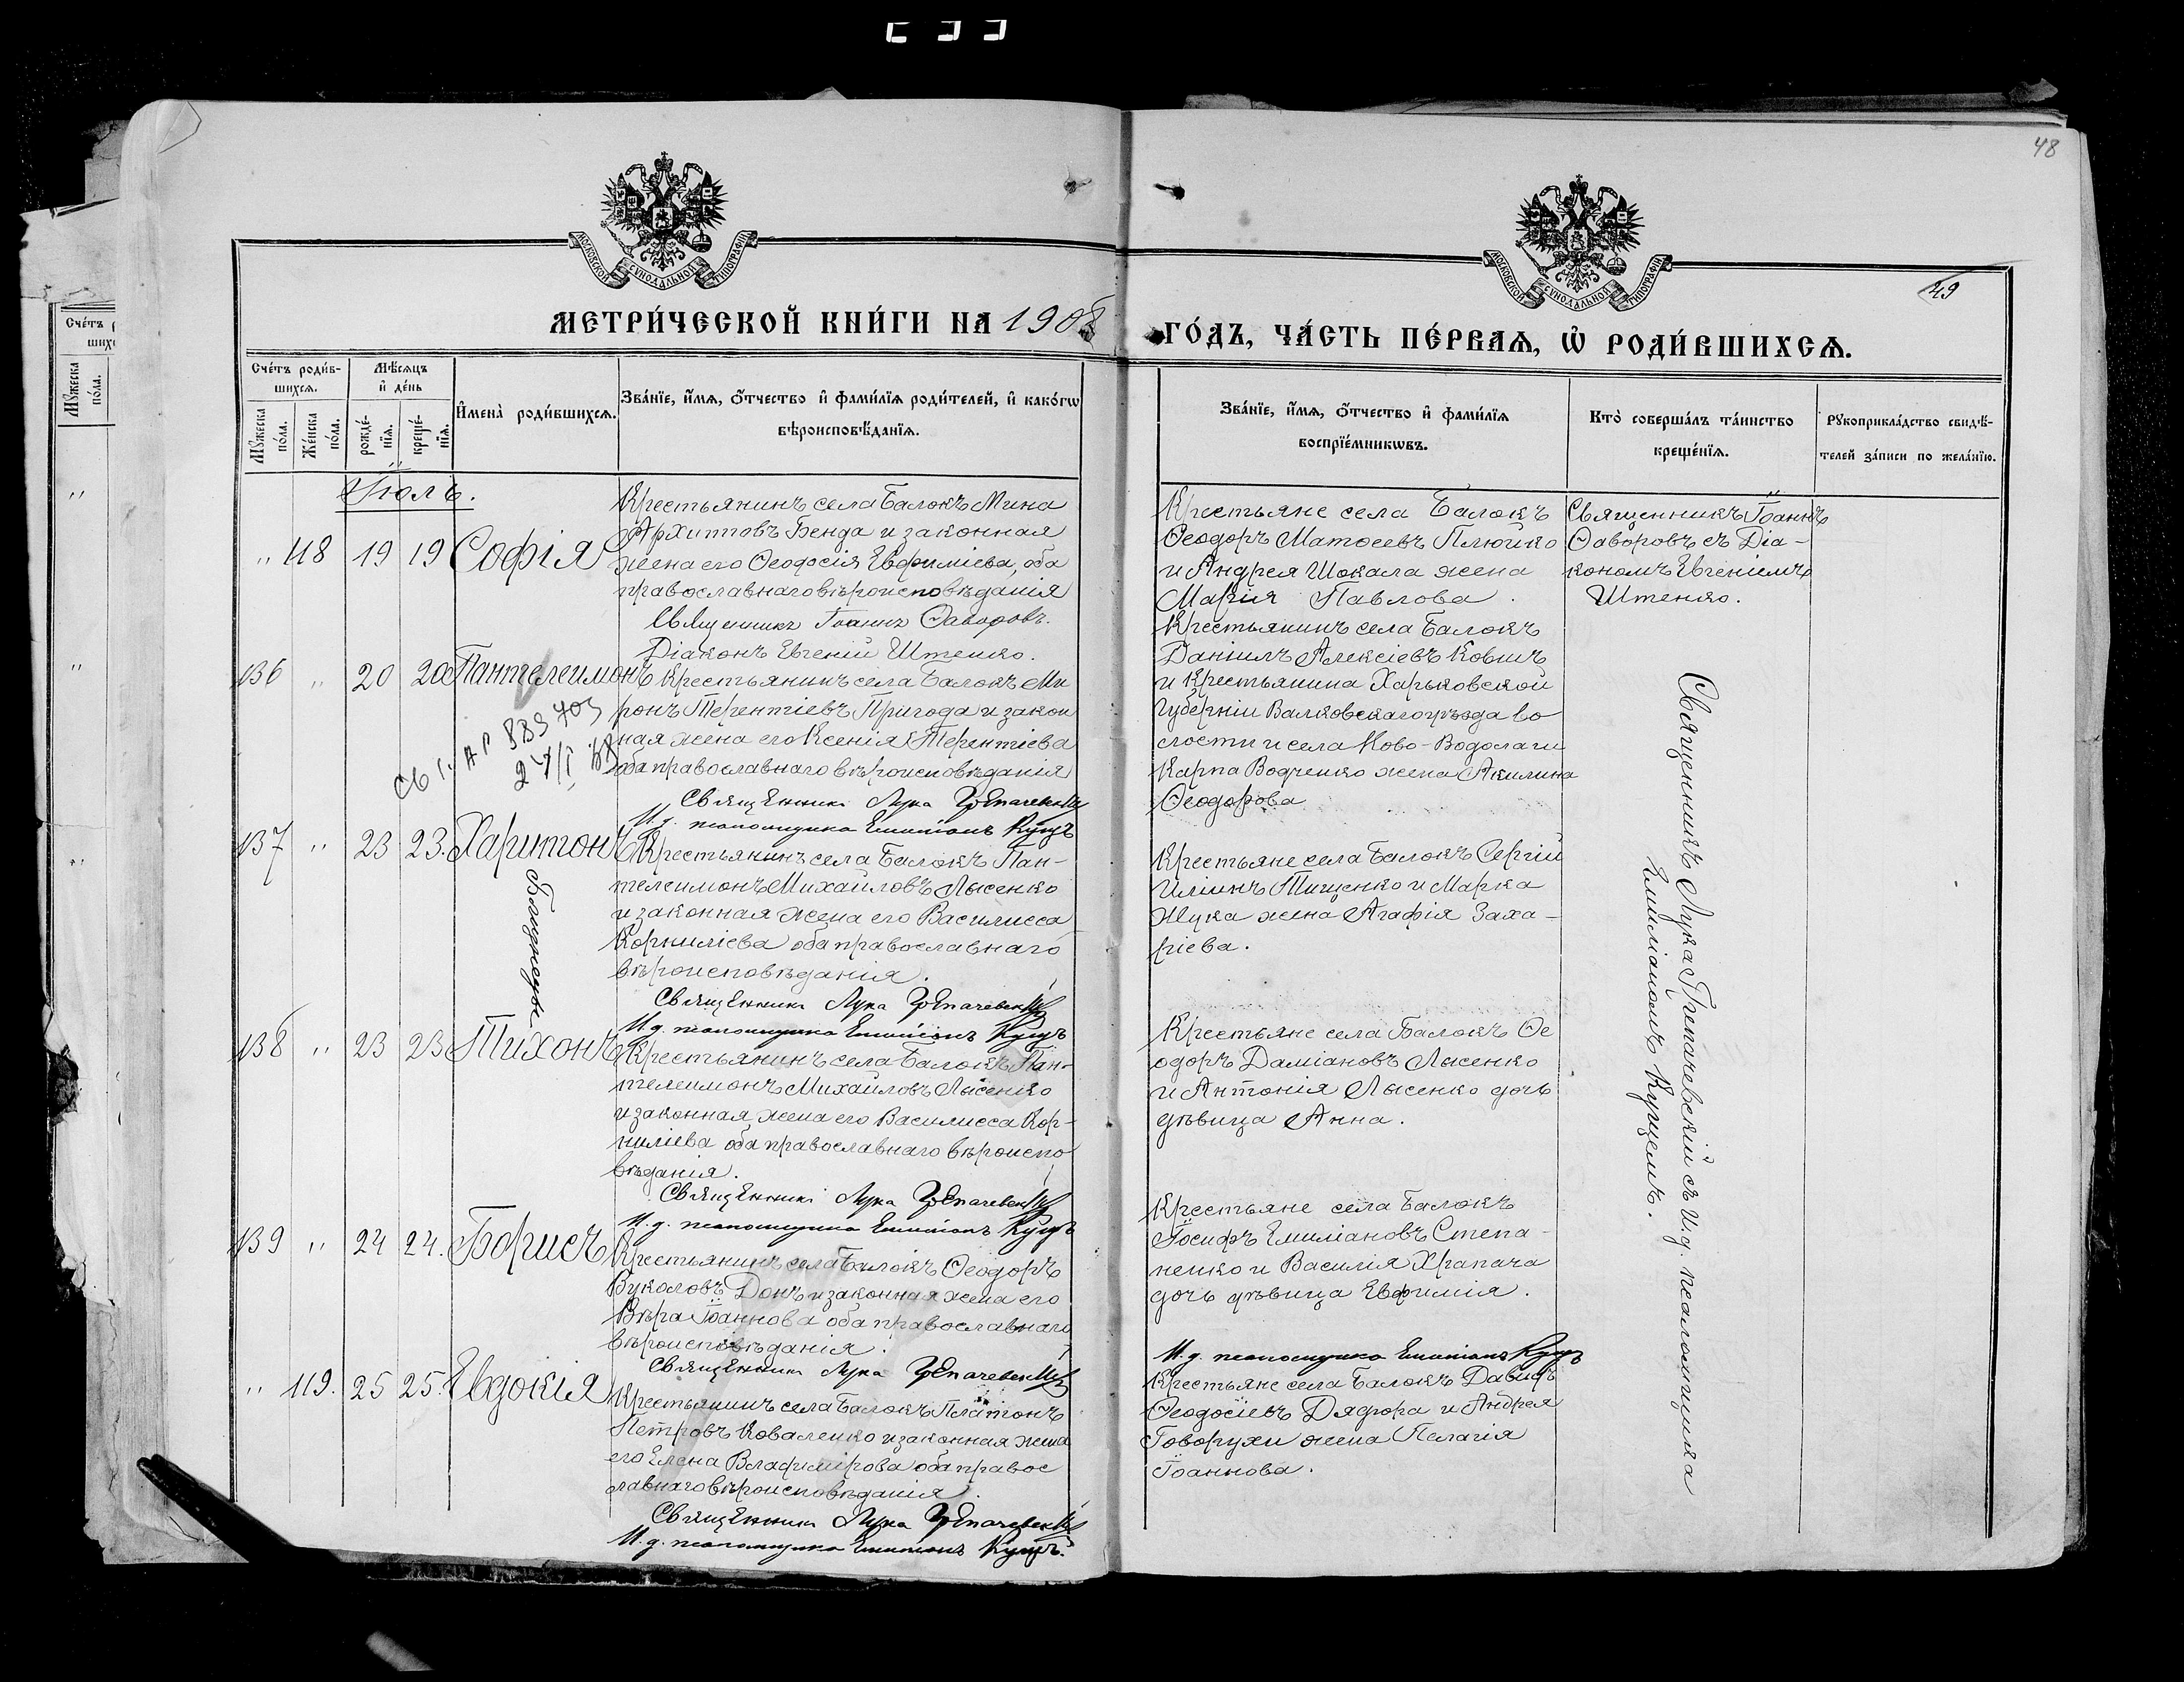 48
49
МОСКОВСКОЙ СѴНОДАЛЬНОЙ ТИПОГРАФІИ
МОСКОВСКОЙ СѴНОДАЛЬНОЙ ТИПОГРАФІИ
МЕТРИ́ЧЕСКОЙ КНИ́ГИ НА 1908
ГО́ДЪ, ЧА́СТЬ ПЕ́РВАѦ, Ѡ҆ РОДИ́ВШИХСѦ.
Сче́тъ роди́в-
шихсѧ.
Мꙋ́жеска по́ла.
Же́нска по́ла.
Мѣ́сѧцъ
и҆ де́нь
рожде́-
нїѧ.
креще́-
нїѧ.
И҆мена̀ роди́вшихсѧ.
Зва́нїе, и҆́мѧ, ѻ҆́тчество и҆ фами́лїѧ роди́телей, и҆ како́гѡ
вѣроисповѣ́данїѧ.
Зва́нїе, и҆́мѧ, ѻ҆́тчество и҆ фами́лїѧ
воспрїе́мникѡвъ.
Кто̀ соверша́лъ та́инство
креще́нїѧ.
Рꙋкоприкла́дство свидѣ́-
телей за́писи по жела́нїю.
Іюль.
" 118 19 19 Софія
Крестьянинъ села Балокъ Мина
Архипповъ Бенда и законная
жена его Ѳеодосія Евфиміева, оба
православнаго вѣроисповѣданія
Священникъ Іоаннъ Ѳаворовъ.
Діаконъ Евгеній Штенко.
Крестьяне села Балокъ
Ѳеодоръ Матѳеевъ Плюйко
и Андрея Шокала жена
Марія Павлова.
Священникъ Іоаннъ
Ѳаворовъ съ Діа-
кономъ Евгеніемъ
Штенко.
136 " 20 20 Пантелеимонъ
Крестьянинъ села Балокъ Ми
ронъ Терентіевъ Пригода и закон
ная жена его Ксенія Терентіева
оба православнаго вѣроисповѣданія
Священникъ Лука Грепачевскій
И. д. псаломщика Емиліанъ Куцъ
Крестьянинъ села Балокъ
Даніилъ Алексіевъ Ковшъ
и крестьянина Харьковской
Губерніи Валковскаго уѣзда во
лости и села Ново-Водолаги
Карпа Водченко жена Акилина
Ѳеодорова
137 " 23 23. Харитонъ
Близнецы
Крестьянинъ села Балокъ Пан-
телеимонъ Михайловъ Лысенко
и законная жена его Василисса
Корниліева оба православнаго
вѣроисповѣданія.
Священникъ Лука Грепачевскій
И. д. псаломщика Емиліанъ Куцъ
Крестьяне села Балокъ Сергій
Иліинъ Тищенко и Марка
Жука жена Агафія Заха-
ріева.
138 " 23 23 Тихонъ
Крестьянинъ села Балокъ Пан-
телеимонъ Михайловъ Лысенко
и законная жена его Василисса Кор-
ниліева оба православнаго вѣроиспо
вѣданія.
Священникъ Лука Грепачевскій
И. д. псаломщика Емиліанъ Куцъ
Крестьяне села Балокъ Ѳе
одоръ Даміановъ Лысенко
и Антонія Лысенко дочь
дѣвица Анна.
139 " 24 24. Борисъ
Крестьянинъ села Балокъ Ѳеодоръ
Вуколовъ Донъ и законная жена его
Вѣра Іоаннова оба православнаго
вѣроисповѣданія.
Священникъ Лука Грепачевскій
Крестьяне села Балокъ
Іосифъ Емиліановъ Степа-
ненко и Василія Храпача
дочь дѣвица Евфимія.
И. д. псаломщика Емиліанъ Куцъ
" 119. 25 25. Евдокія
Крестьянинъ села Балокъ Платонъ
Петровъ Коваленко и законная жена
его Елена Владимірова оба правос
лавнаго вѣроисповѣданія.
Священникъ Лука Грепачевскій
И. д. псаломщика Емиліанъ Куцъ.
Крестьяне села Балокъ Давидъ
Ѳеодосіевъ Дядюра и Андрея
Говорухи жена Пелагія
Іоаннова.
Священникъ Лука Грепачевскій съ И. д. псаломщика
Емиліаномъ Куцемъ.